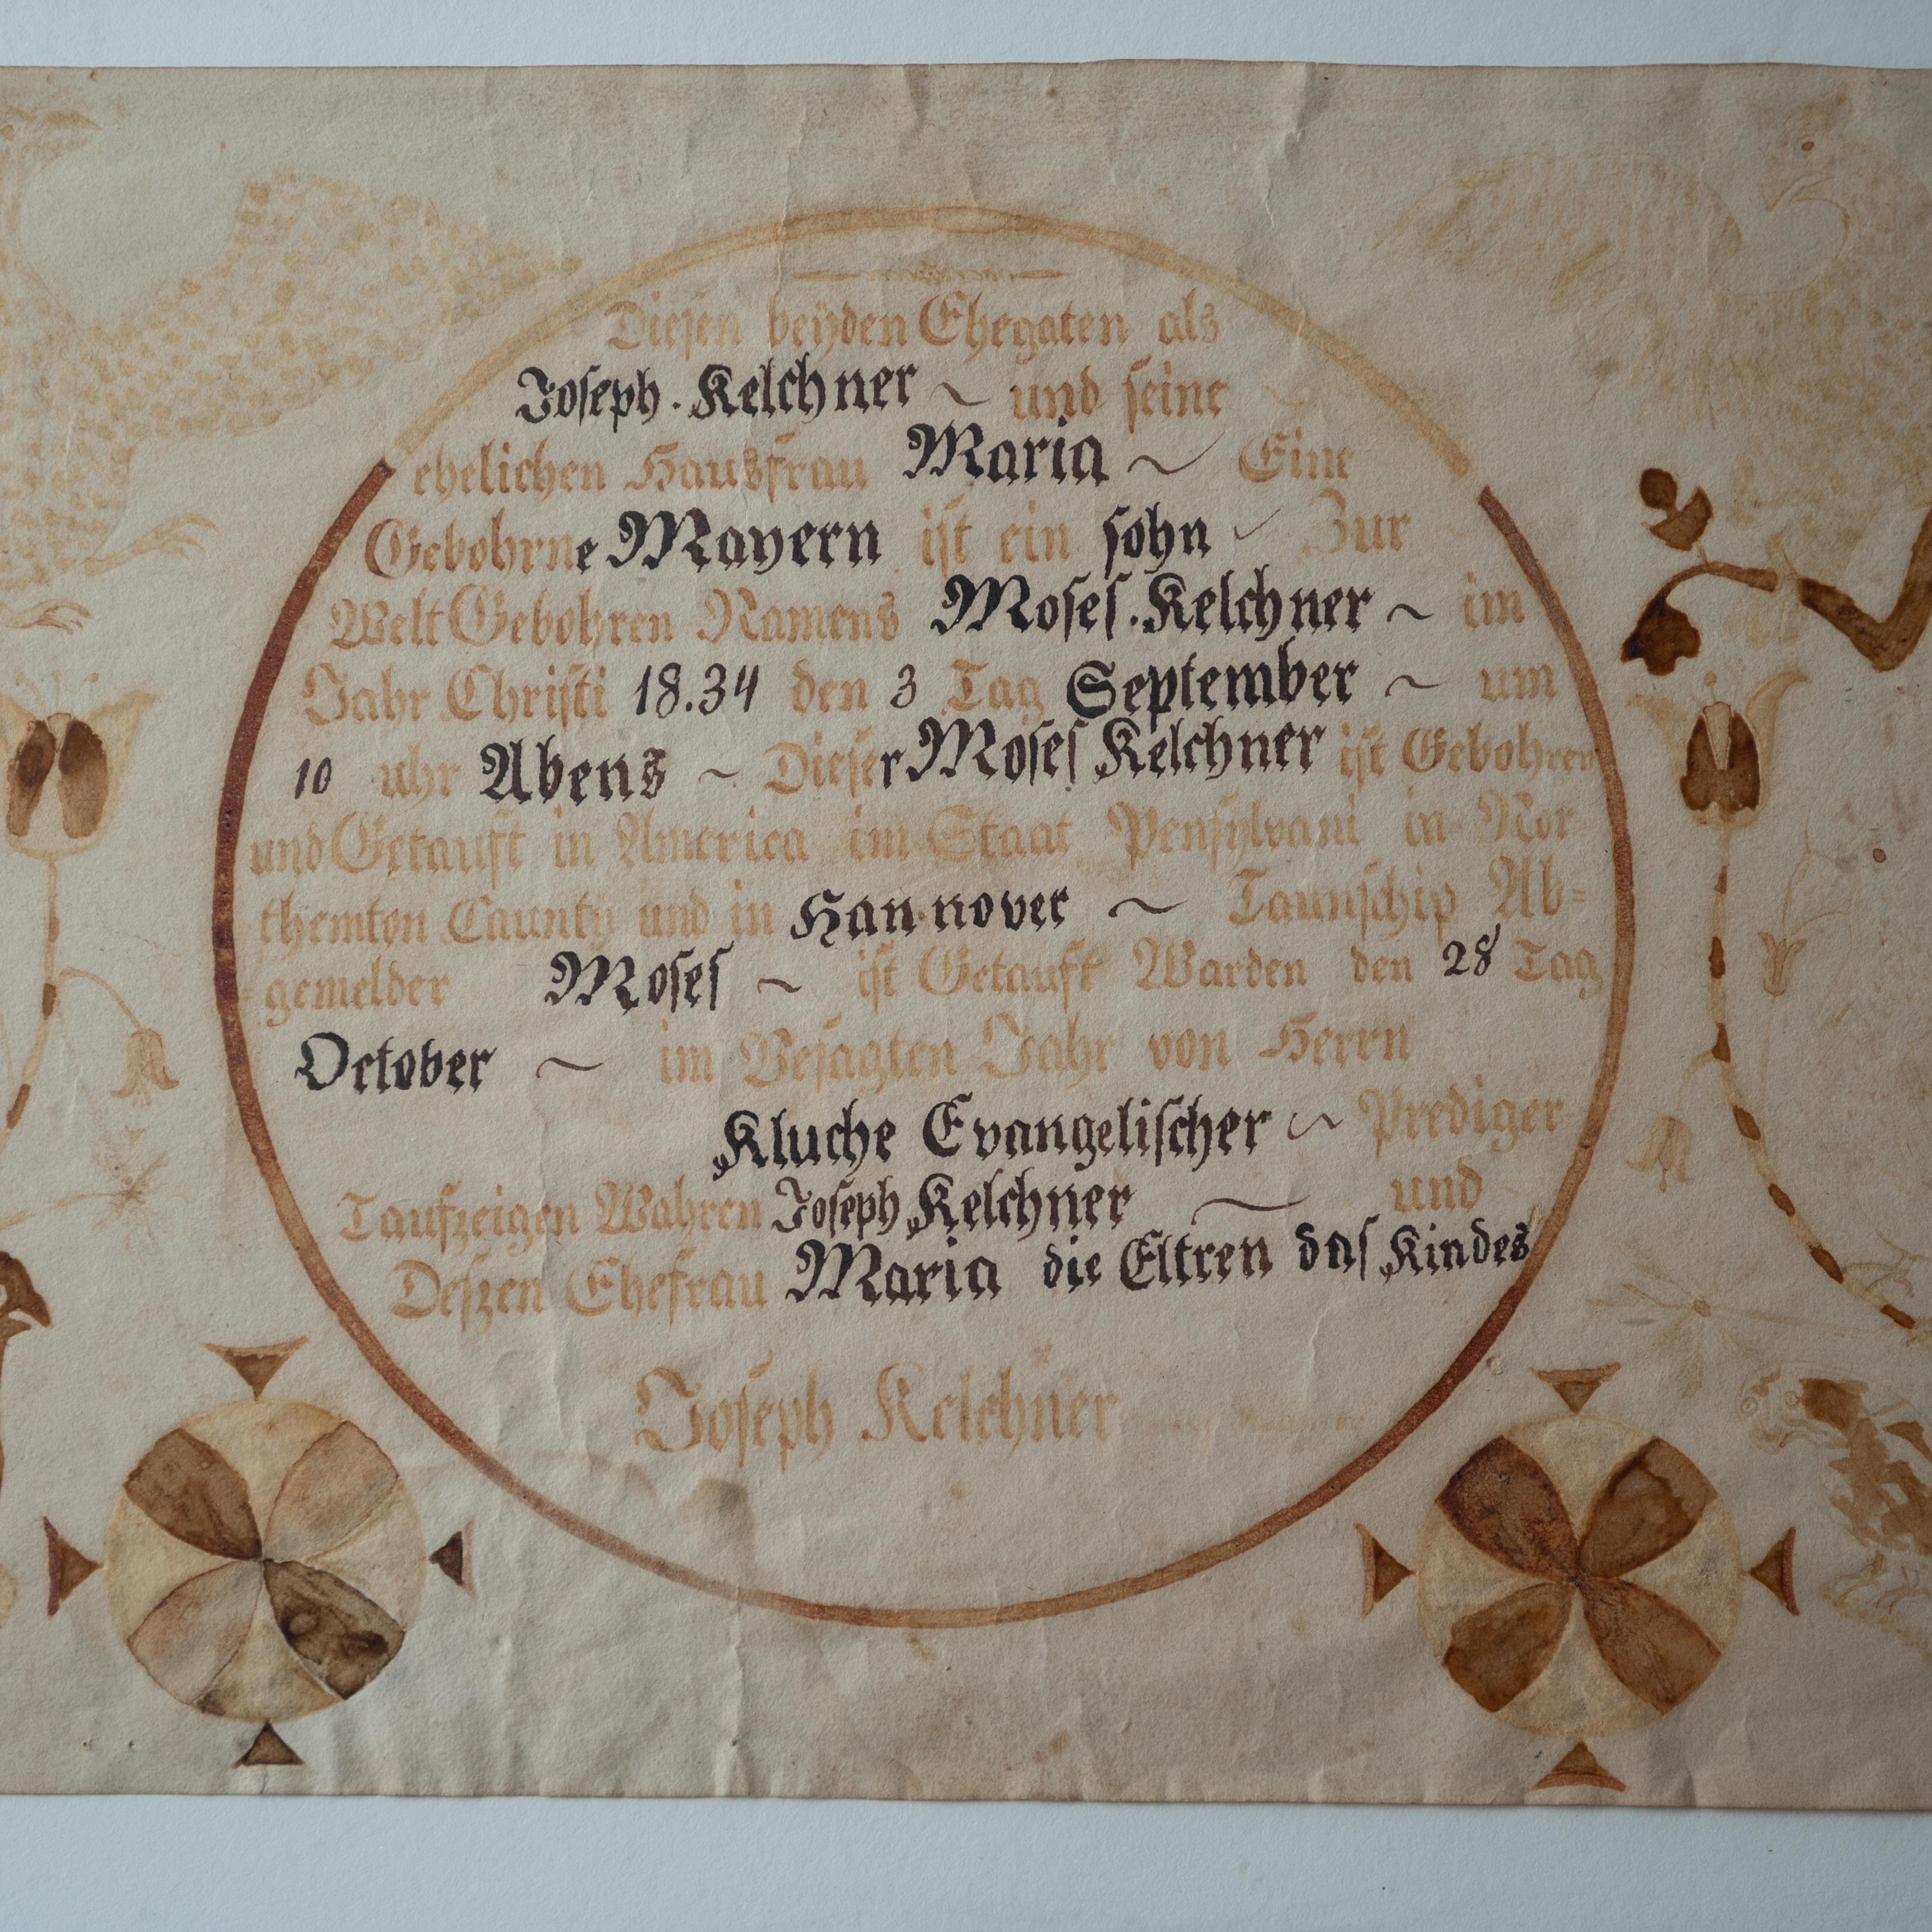 Diesen beyden Ehegaten als
Joseph. Kelchner ~ und seine
ehelichen Hausfrau Maria ~ Eine
Gebohrne Mayern ist ein sohn ~ Zur
Welt Gebohren Namens Moses. Kelchner ~ im
Jahr Christi 18.34 den 3 Tag September ~ um
10 uhr Abens ~ Dieser Moses Kelchner ist Gebohren
und Getauft in America im Staat Pensylvani in Nor
themton Caunty und in Hannover ~ Taunschip Ab=
gemelder Moses ~ ist Getauft Warden den 28 Tag
October ~ im Besagten Jahr von Herrn
Kluche Evangelischer ~ Prediger
Taufzeigen Wahren Joseph Kelchner ~ und
Deszen Ehefrau Maria die Eltren das Kindes
Joseph Kelchner